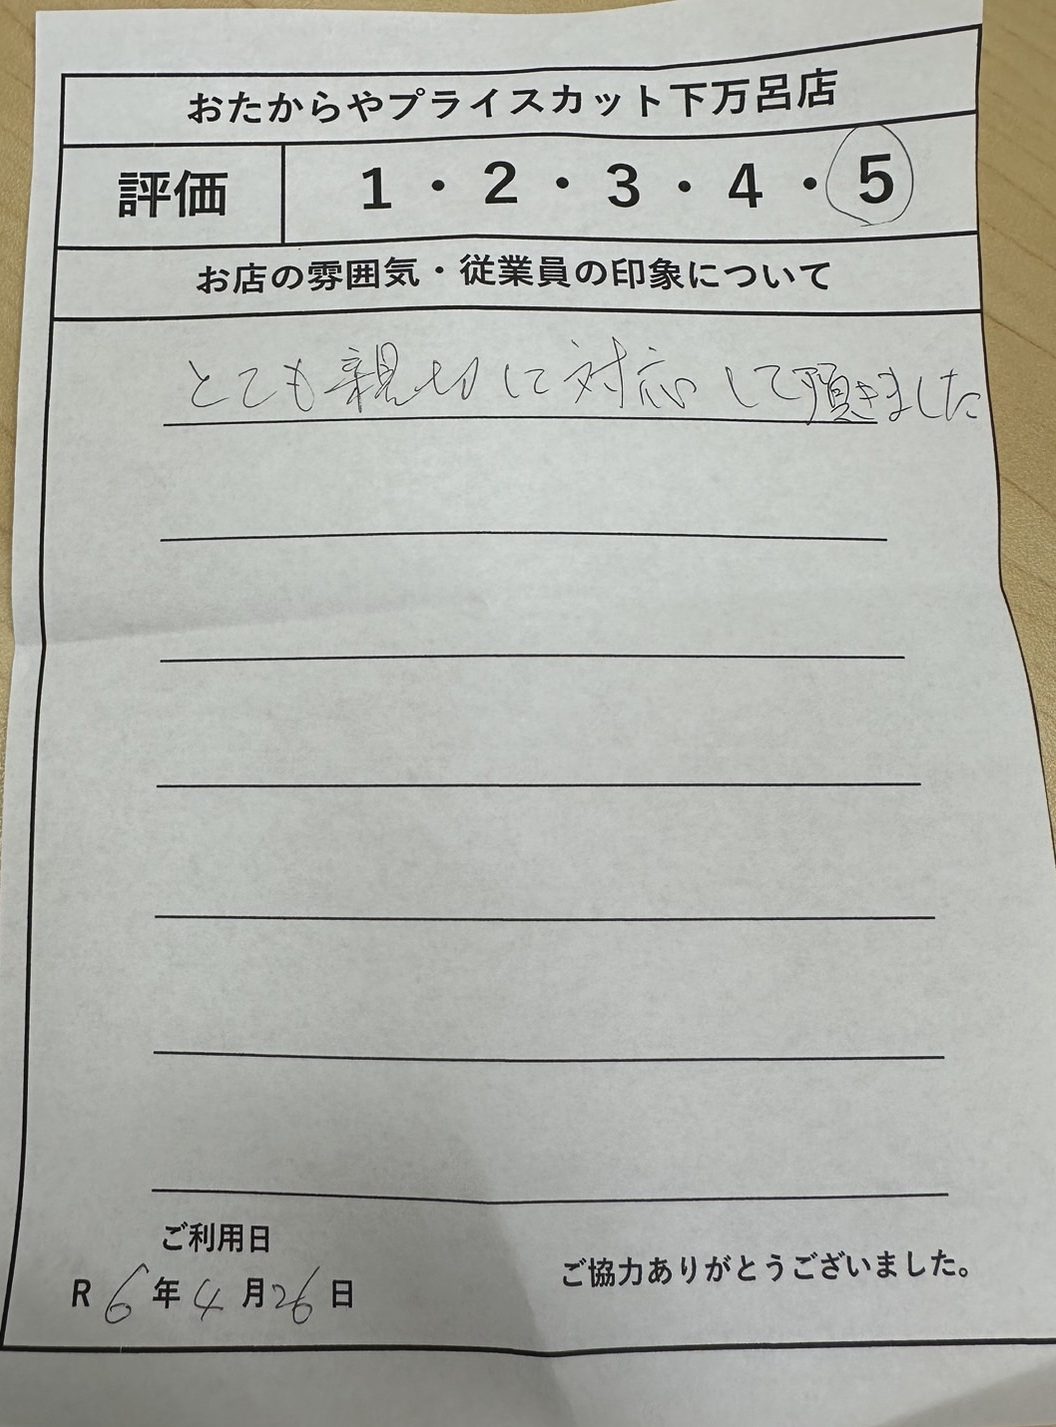 おたからやプライスカット下万呂店
評価 1・2・3・4・5
お店の雰囲気・従業員の印象について
とても親切に対応して頂きました
ご利用日
R6年4月26日
ご協力ありがとうございました。